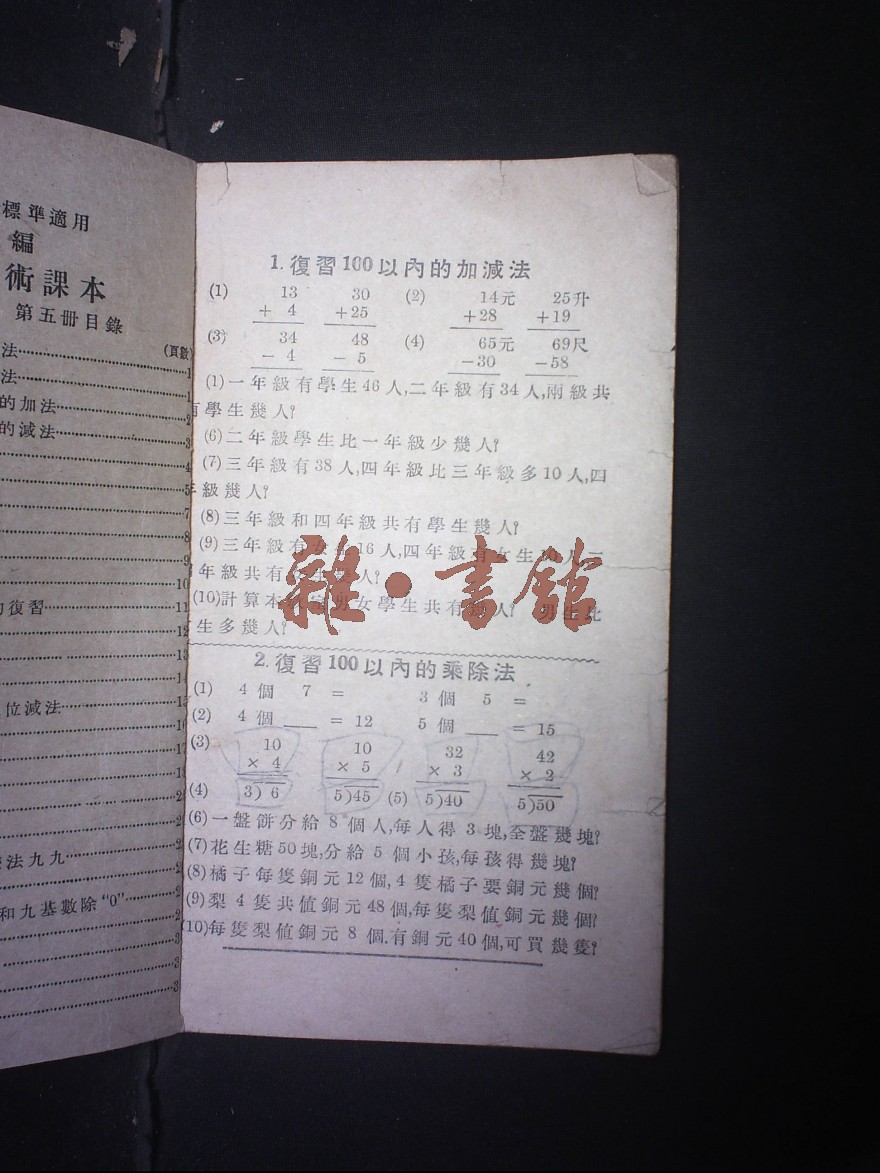 標準適用
編
術課本
第五冊目錄
(頁數)
法 1
法 1
的加法 2
的減法 3
4
5
7
8
9
10
復習 11
12
13
14
位減法 15
16
17
法九九
和九基數除“0”
1. 復習100以內的加減法
(1) 13 30 (2) 14元 25升
+ 4 +25 +28 +19
(3) 34 48 (4) 65元 69尺
- 4 - 5 -30 -58
(1)一年級有學生46人,二年級有34人,兩級共
有學生幾人?
(6)二年級學生比一年級少幾人?
(7)三年級有38人,四年級比三年級多10人,四
年級幾人?
(8)三年級和四年級共有學生幾人?
(9)三年級有女生16人,四年級有女生 人
年級共有 人?
(10)計算本 女學生共有 人? 男生比
生多幾人?
雜·書館
2. 復習100以內的乘除法
(1) 4個 7 = 3個 5 =
(2) 4個 ___ = 12 5個 ___ = 15
(3) 10 10 32 42
× 4 × 5 × 3 × 2
(4) 3)6 5)45 (5) 5)40 5)50
(6)一盤餅分給8個人,每人得3塊,全盤幾塊?
(7)花生糖50塊,分給5個小孩,每孩得幾塊?
(8)橘子每隻銅元12個,4隻橘子要銅元幾個?
(9)梨4隻共值銅元48個,每隻梨值銅元幾個?
(10)每隻梨值銅元8個.有銅元40個,可買幾隻?